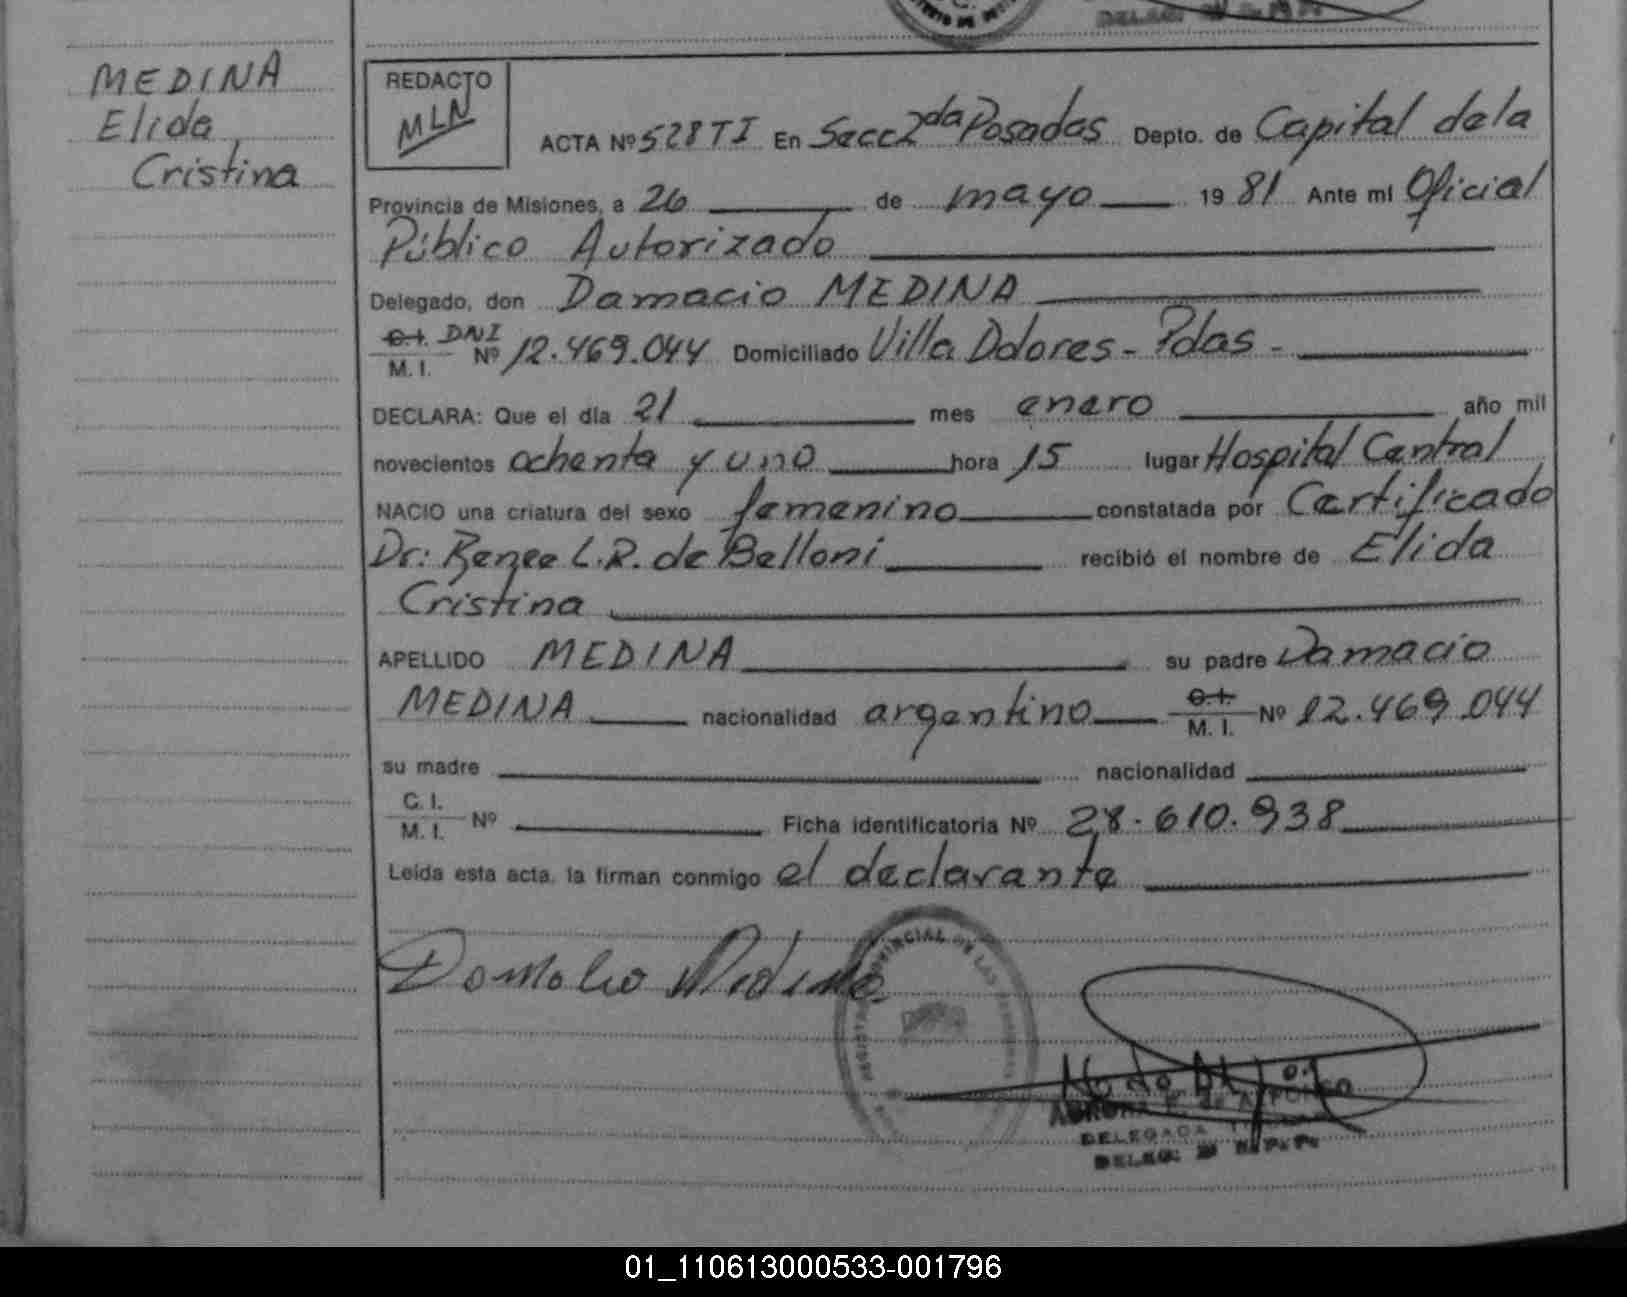 MEDINA
Elida
Cristina
REDACTO
MLN
ACTA Nº 528 TI En Secc 2da Posadas Depto. de Capital de la
Provincia de Misiones, a 26 de mayo 19 81 Ante mí Oficial
Público Autorizado
Delegado, don Damacio MEDINA
C.I. DNI
M. I. Nº 12.469.044 Domiciliado Villa Dolores - Pdas -
DECLARA: Que el día 21 mes enero año mil
novecientos ochenta y uno hora 15 lugar Hospital Central
NACIO una criatura del sexo femenino constatada por Certificado
Dr: Renee L.R. de Belloni recibió el nombre de Elida
Cristina
APELLIDO MEDINA su padre Damacio
MEDINA nacionalidad argentino C.I. M. I. Nº 12.469.044
su madre nacionalidad
C. I. M. I. Nº Ficha identificatoria Nº 28.610.938
Leída esta acta, la firman conmigo el declarante
DELEGADA
01_110613000533-001796